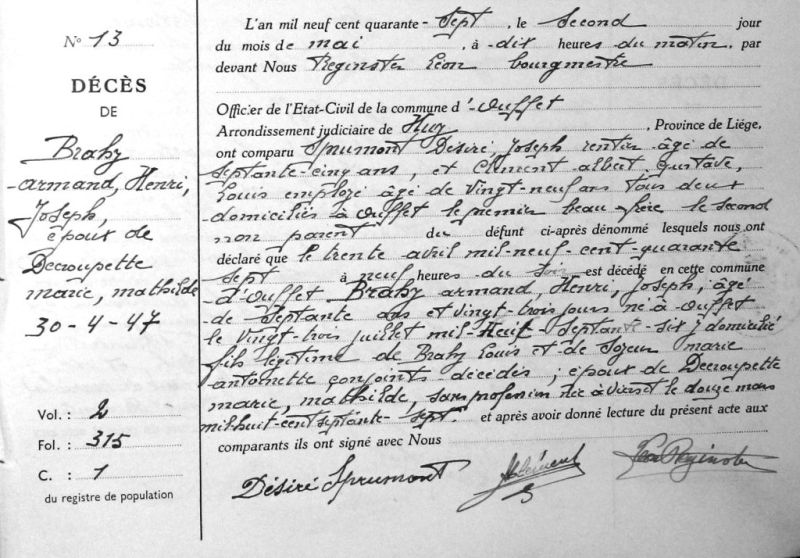 N° 13
DÉCÈS
DE
Brahy
Armand, Henri,
Joseph,
époux de
Decroupette
marie, mathilde
30-4-47
Vol. : 2
Fol. : 315
C. : 1
du registre de population
L'an mil neuf cent quarante-sept, le second jour
du mois de mai, à dix heures du matin, par
devant Nous Reginster Léon bourgmestre
Officier de l'Etat-Civil de la commune d'Ouffet
Arrondissement judiciaire de Huy, Province de Liége,
ont comparu Sprumont Désiré, Joseph rentier âgé de
septante-cinq ans, et Clément albert Gustave,
Louis employé âgé de vingt-neuf ans tous deux
domiciliés à Ouffet le premier beau-frère le second
non parent du défunt ci-après dénommé lesquels nous ont
déclaré que le trente avril mil-neuf-cent-quarante
sept à neuf heures du soir est décédé en cette commune
d'Ouffet Brahy armand, Henri, Joseph, âgé
de Septante ans et vingt-trois jours né à Ouffet
le vingt-trois juillet mil-Huit-Septante-six, domicilié
fils légitime de Brahy Louis et de marie
antoinette conjoints décédés ; époux de Decroupette
marie, mathilde, sans profession née à le douze mars
mil-huit-cent-septante-sept. et après avoir donné lecture du présent acte aux
comparants ils ont signé avec Nous
Désiré Sprumont AClément Léon Reginster